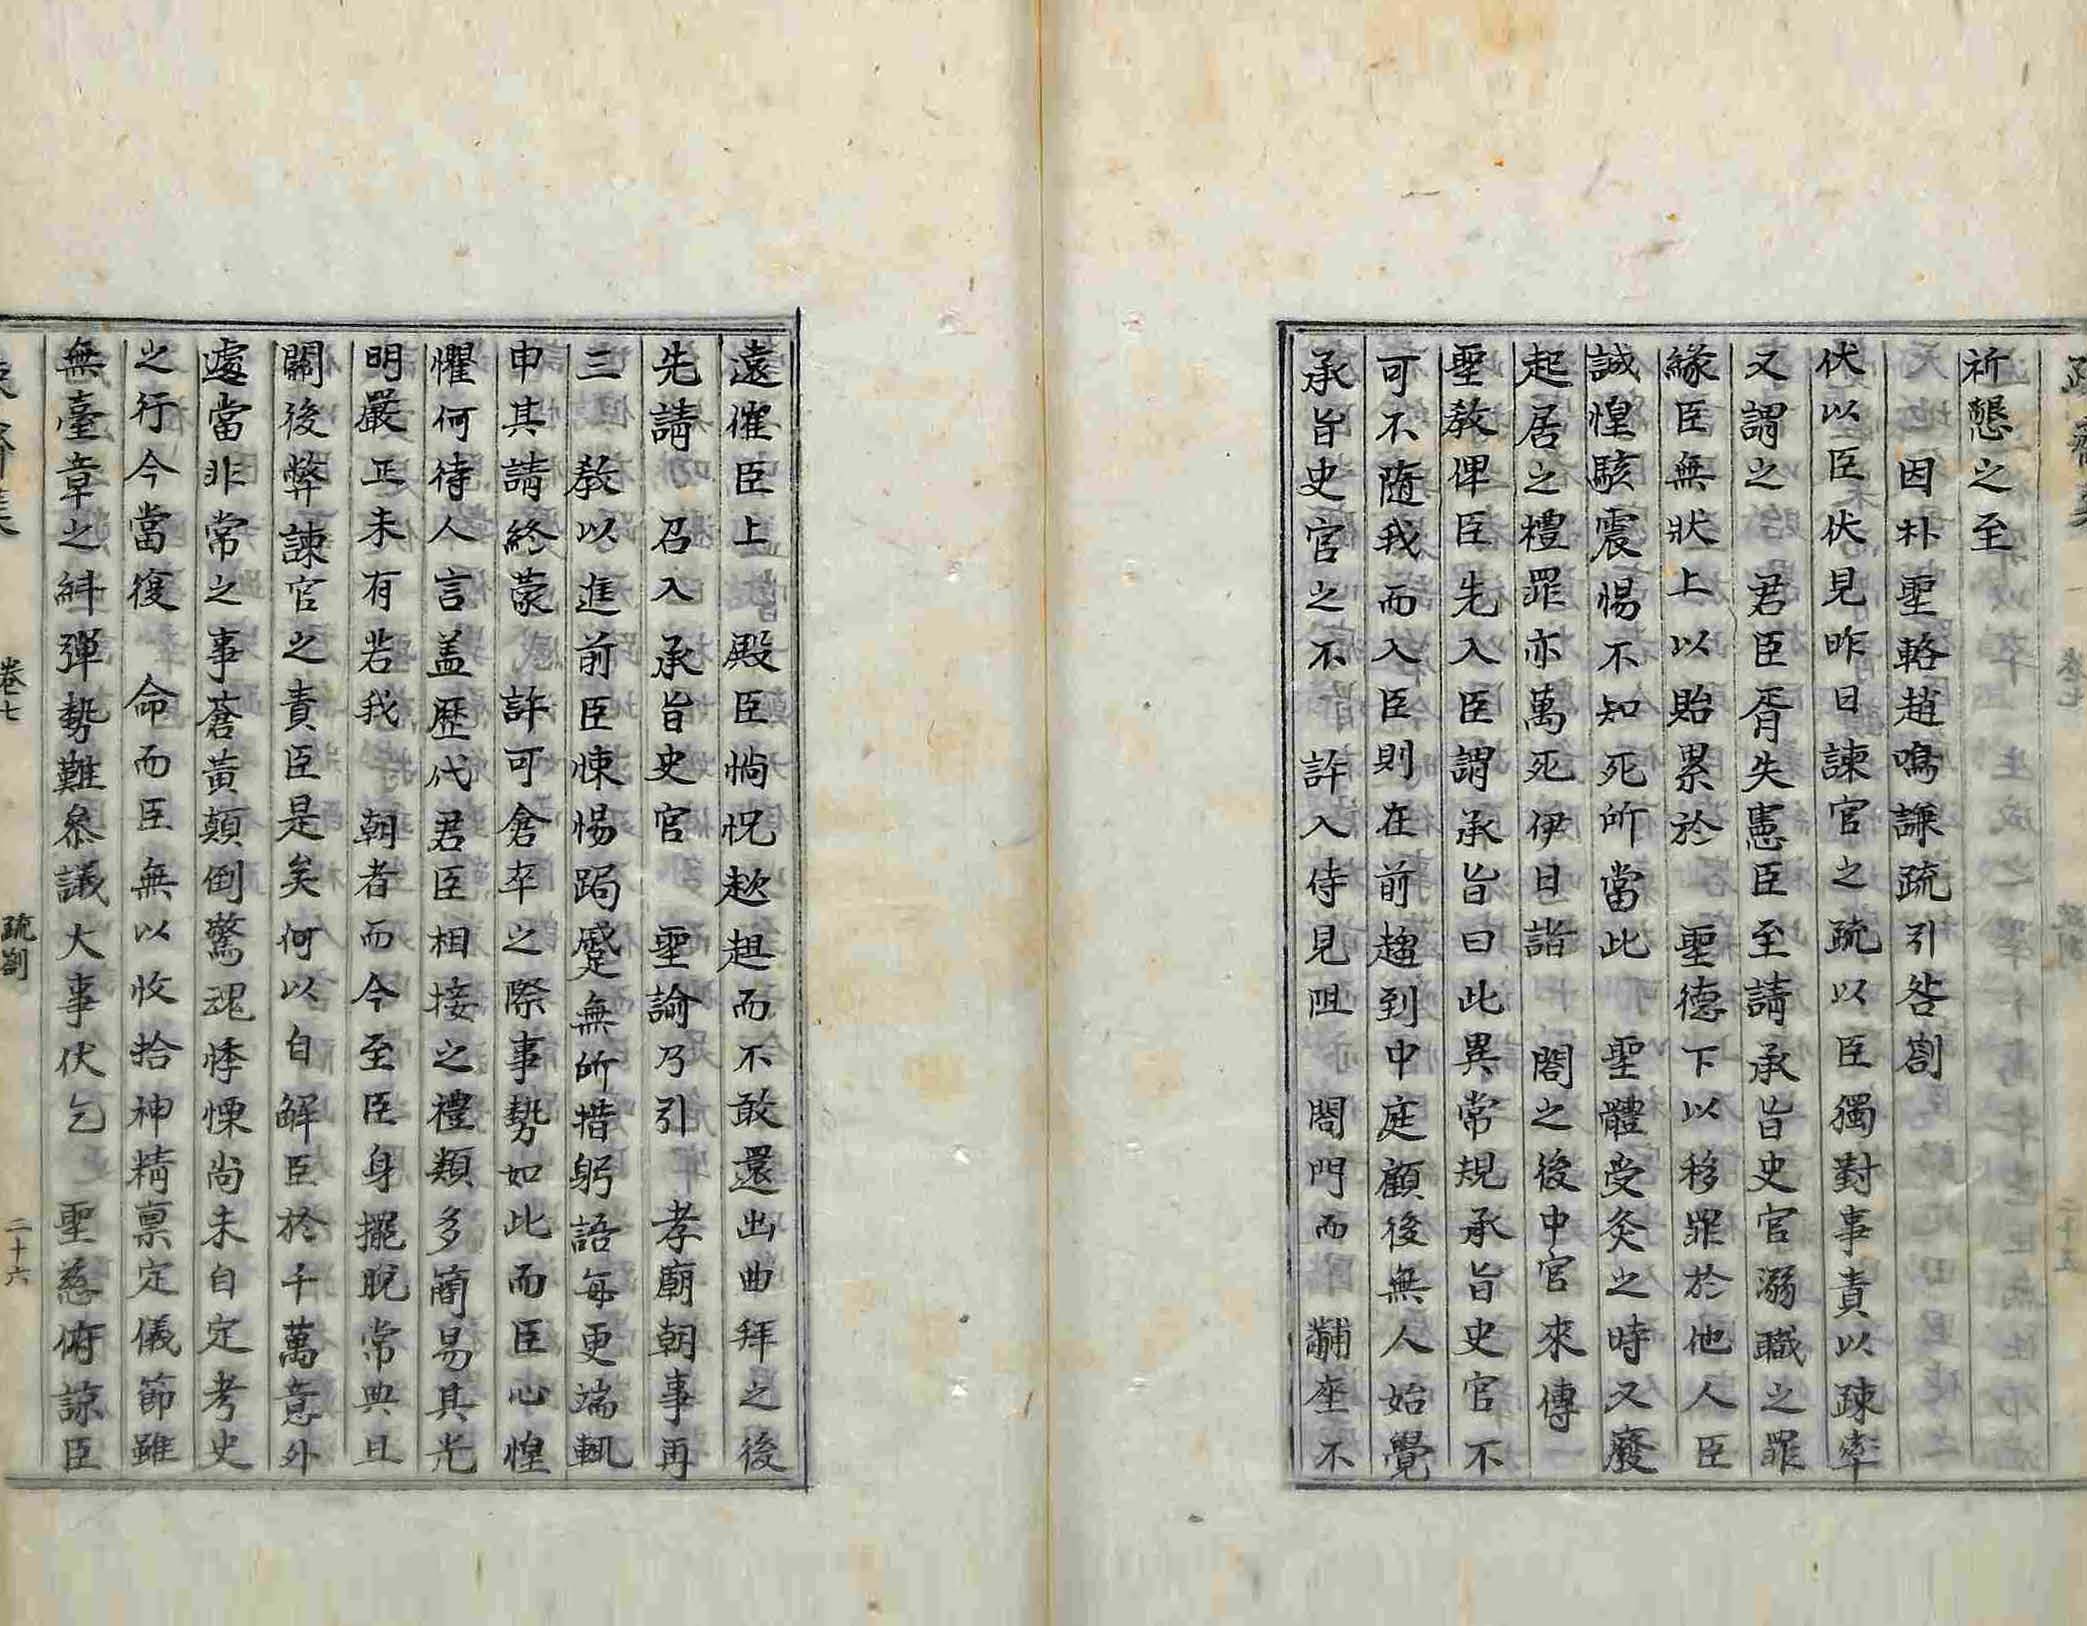 祈懇之至
因朴聖輅趙鳴謙疏引咎劄
伏以臣伏見昨日諫官之疏以臣獨對事責以疎率
又謂之 君臣胥失憲臣至請承旨史官溺職之罪
緣臣無狀上以貽累於 聖德下以移罪於他人臣
誠惶駭震惕不知死所當此 聖體受灸之時又廢
起居之禮罪亦萬死伊日詣 閤之後中官來傳
聖教俾臣先入臣謂承旨曰此異常規承旨史官不
可不隨我而入臣則在前趨到中庭顧後無人始覺
承旨史官之不 許入侍見阻 閤門而 黼座不
遠催臣上 殿臣惝怳趑趄而不敢還出曲拜之後
先請 召入 承旨史官 聖諭乃引 孝廟朝事再
三 教以進前臣悚惕跼蹙無所措躬語每更端輒
申其請終蒙 許可倉卒之際事勢如此而臣心惶
懼何待人言盖歷代君臣相接之禮類多簡易其光
明嚴正未有若我 朝者而今至臣身擺脫常典且
關後弊諫官之責臣是矣何以自解臣於千萬意外
遽當非常之事蒼黃顚倒驚魂悸慄尙未自定考史
之行今當復 命而臣無以收拾神精稟定儀節雖
無臺章之紏彈勢難叅議大事伏乞 聖慈俯諒臣
卷七
疏劄
二十六